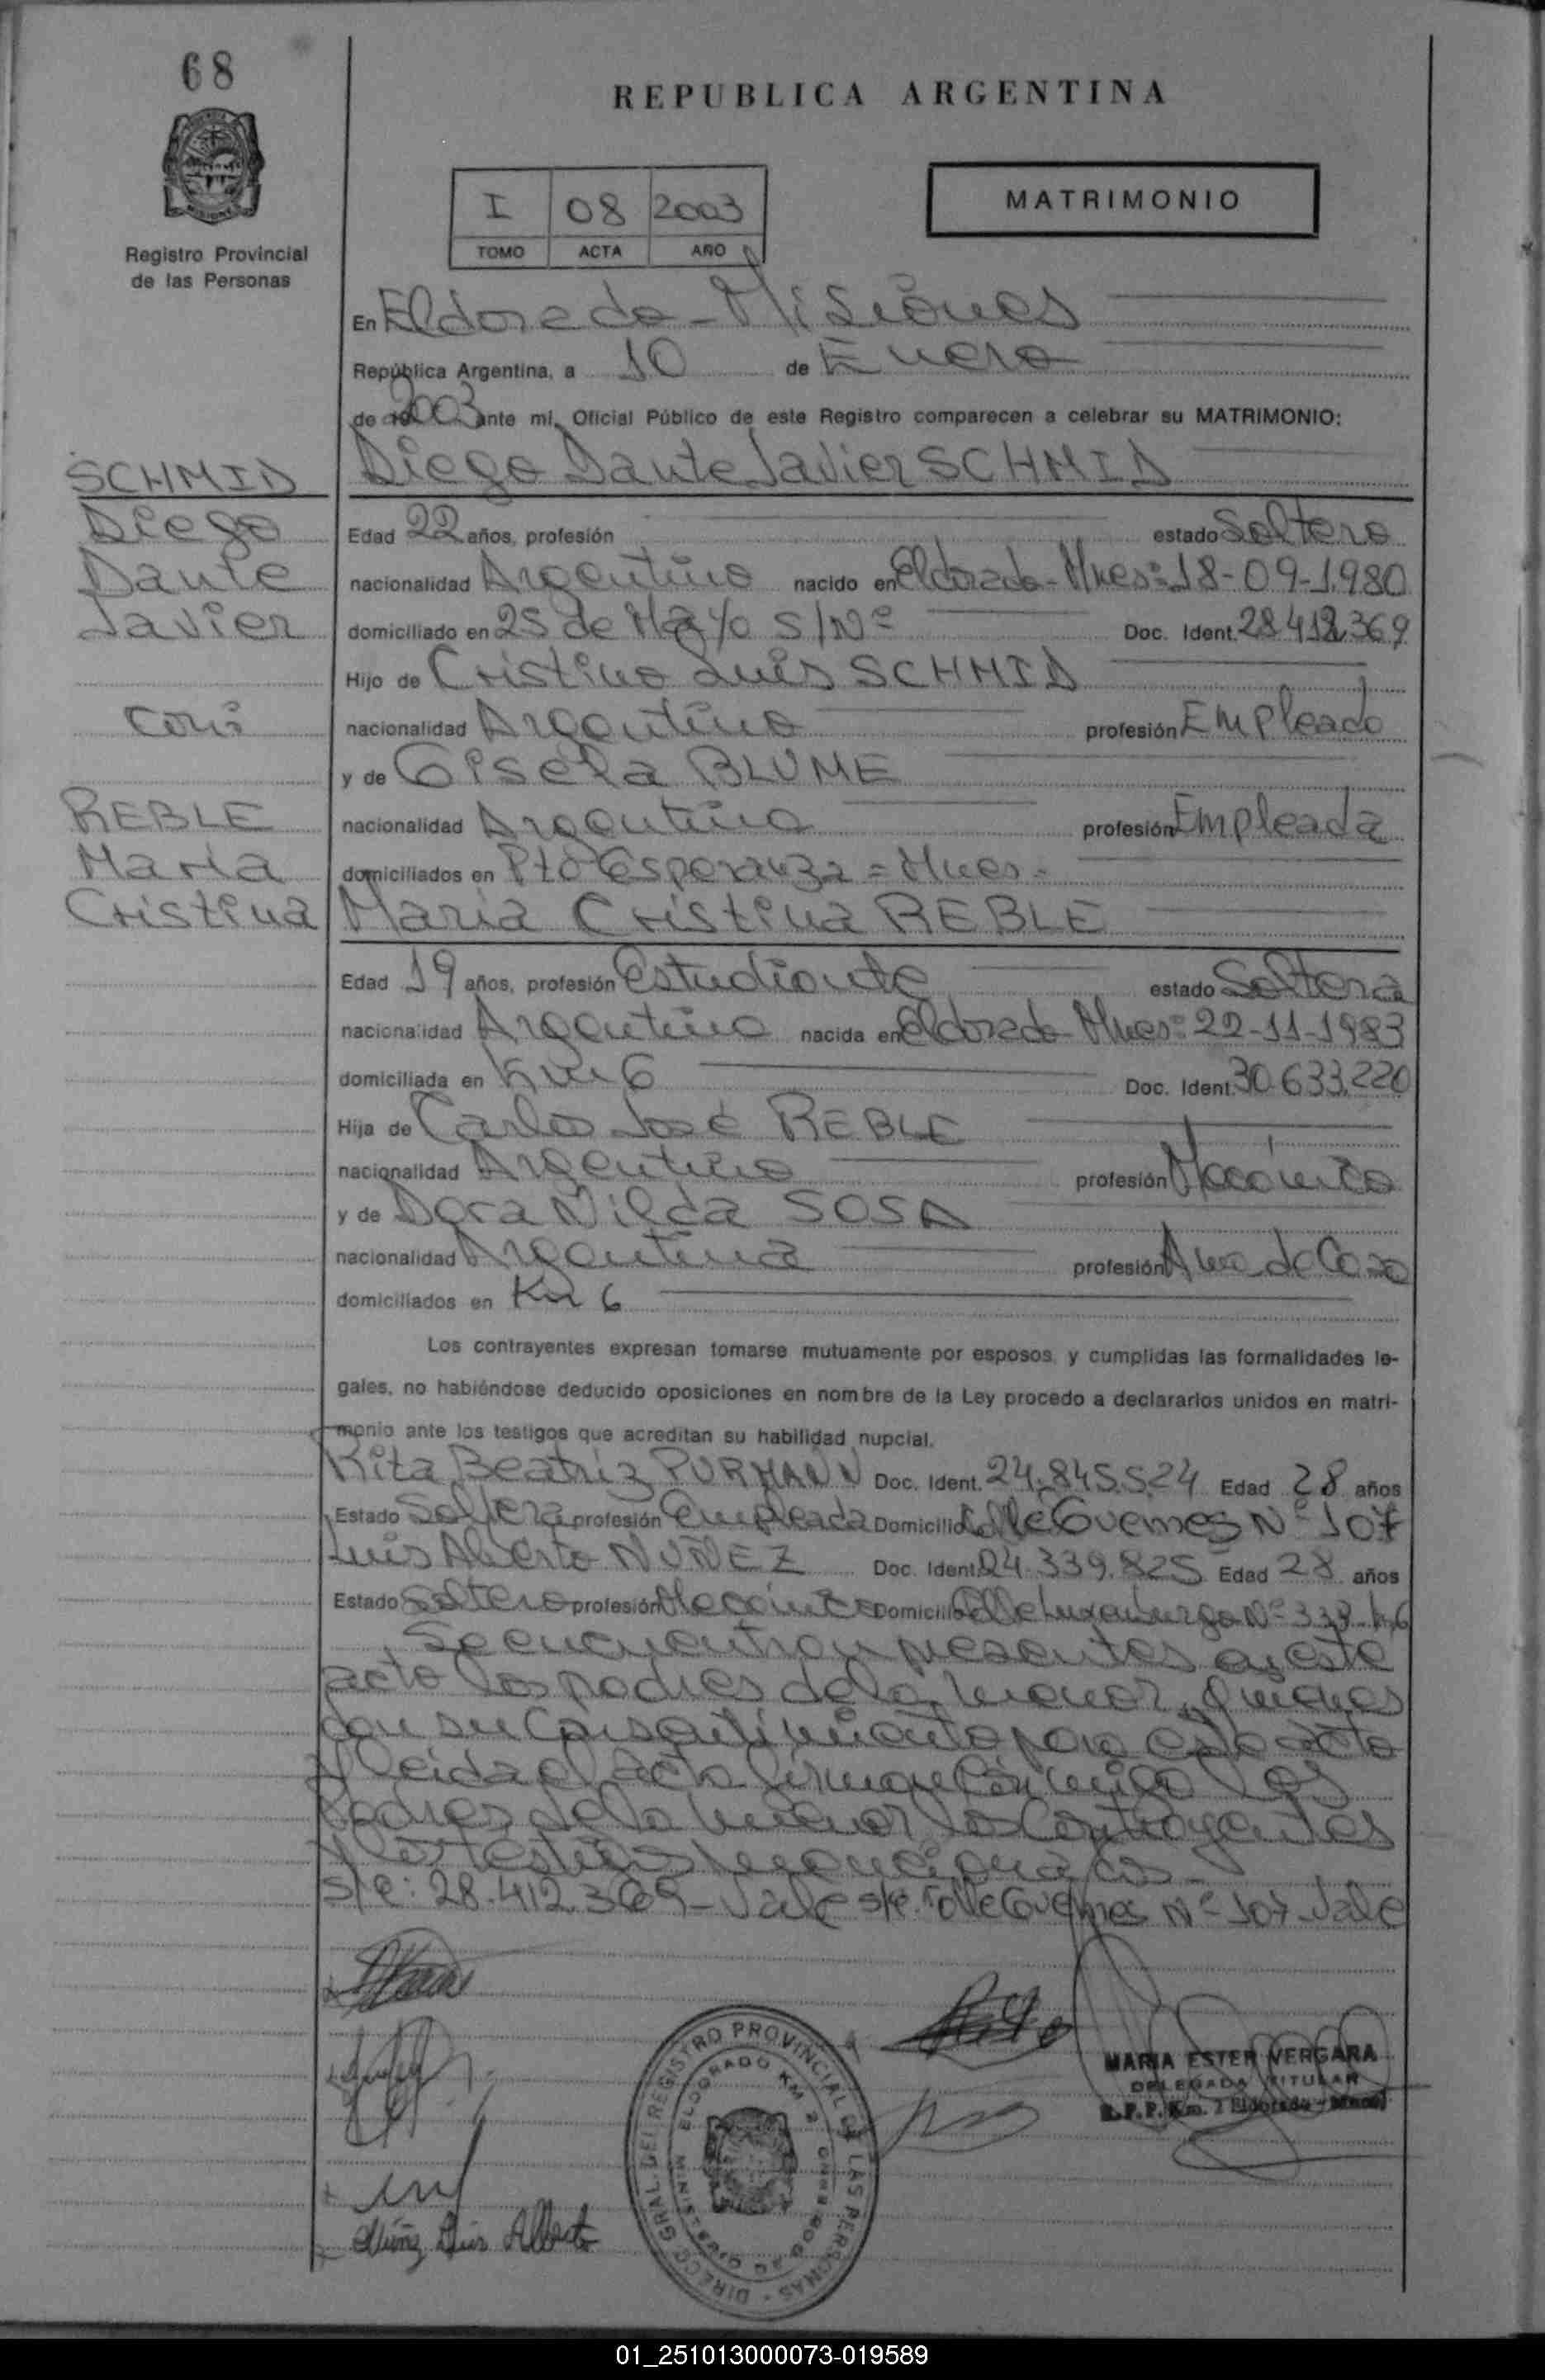 68
REPUBLICA ARGENTINA
MATRIMONIO
I 08 2003
TOMO ACTA AÑO
Registro Provincial
de las Personas
En Eldorado - Misiones
República Argentina, a 10 de Enero
de 2003 ante mi, Oficial Público de este Registro comparecen a celebrar su MATRIMONIO:
SCHMID
Diego
Dante
Javier
con:
REBLE
María
Cristina
Diego Dante Javier SCHMID
Edad 22 años, profesión estado Soltero
nacionalidad Argentino nacido en Eldorado - Mnes: 18-09-1980
domiciliado en 25 de Mayo S/Nº Doc. Ident. 28.412.369
Hijo de Cristino Luis SCHMID
nacionalidad Argentino profesión Empleado
y de Gisela BLUME
nacionalidad Argentina profesión Empleada
domiciliados en Pto Esperanza = Mnes.
María Cristina REBLE
Edad 19 años, profesión Estudiante estado Soltera
nacionalidad Argentina nacida en Eldorado Mnes: 22-11-1983
domiciliada en Km 6 Doc. Ident. 30.633.220
Hija de Carlos José REBLE
nacionalidad Argentino profesión Mecánico
y de Dora Nilda SOSA
nacionalidad Argentina profesión Ama de Casa
domiciliados en Km 6
Los contrayentes expresan tomarse mutuamente por esposos, y cumplidas las formalidades le-
gales, no habiéndose deducido oposiciones en nombre de la Ley procedo a declararlos unidos en matri-
monio ante los testigos que acreditan su habilidad nupcial.
Rita Beatriz PURMANN Doc. Ident. 24.845.524 Edad 28 años
Estado Soltera profesión Empleada Domicilio Calle Guemes Nº 107
Luis Alberto NUÑEZ Doc. Ident. 24.339.825 Edad 28 años
Estado Soltero profesión Mecánico Domicilio Calle Luxemburgo Nº 338 - Km 6
Se encuentran presentes en este
acto los padres de la menor, quienes
dan su Consentimiento para este acto
Leida el acta firman Conmigo Los
Padres de la menor los Contrayentes
y los testigos mencionados.
S/e: 28.412.369 - Vale s/e: Calle Guemes Nº 107 - Vale
Nuñez Luis Alberto
DIRECC. GRAL. DEL REGISTRO PROVINCIAL DE LAS PERSONAS
ELDORADO KM 2
MARIA ESTER VERGARA
DELEGADA TITULAR
R.P.P. Km. 2 Eldorado - Mnes
01_251013000073-019589